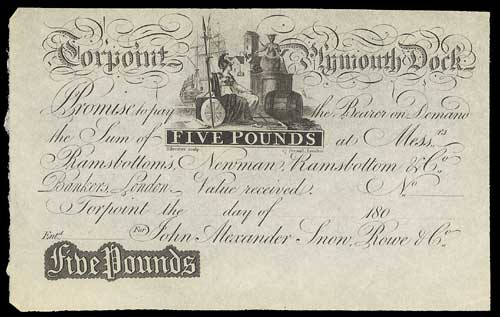 Torpoint Plymouth Dock
Promise to pay the Bearer on Demand
the Sum of FIVE POUNDS at Mess.rs
Ramsbottoms, Newman, Ramsbottom & Co.
Bankers, London. Value received. No
Torpoint the day of 180
Ent.d For John Alexander Snow, Rowe & Co.
Five Pounds